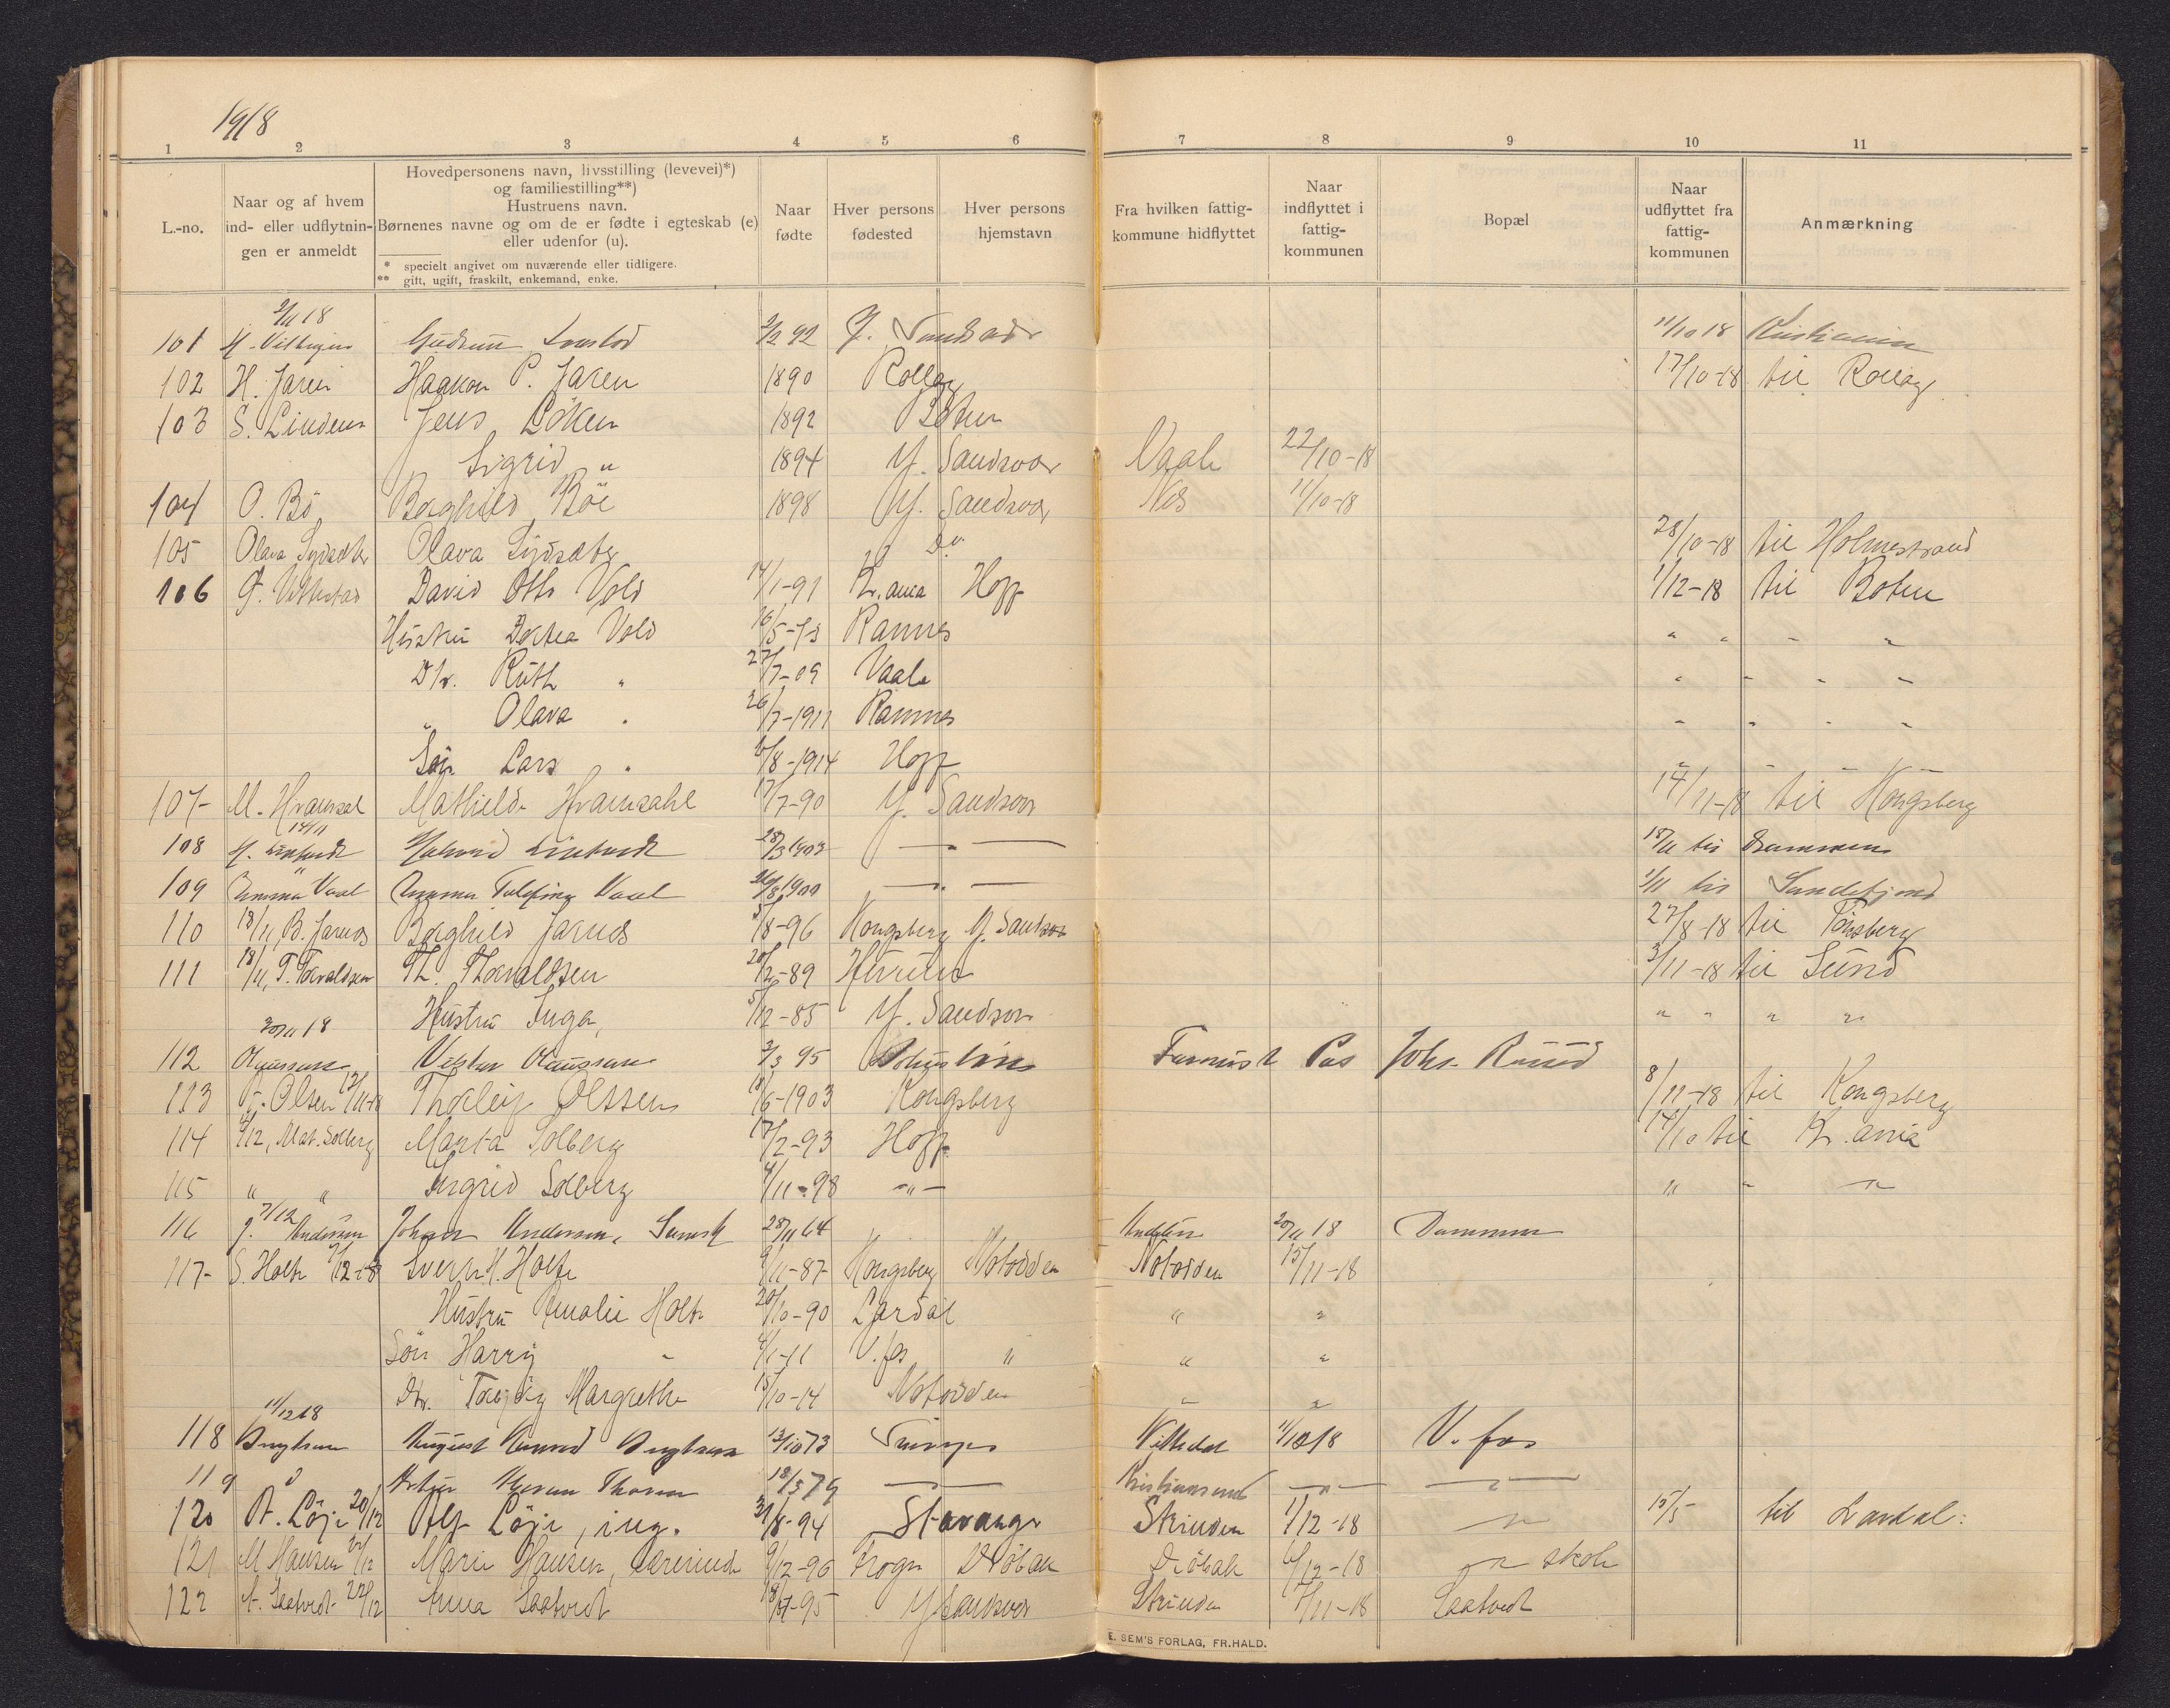 1918
1 2 3 4 5 6 7 8 9 10 11
L.-no.
Naar og af hvem
ind- eller udflytnin-
gen er anmeldt
Hovedpersonens navn, livsstilling (levevei)*)
og familiestilling**)
Hustruens navn.
Børnenes navne og om de er fødte i egteskab (e)
eller udenfor (u).
* specielt angivet om nuværende eller tidligere.
** gift, ugift, fraskilt, enkemand, enke.
Naar
fødte
Hver persons
fødested
Hver persons
hjemstavn
Fra hvilken fattig-
kommune hidflyttet
Naar
indflyttet i
fattig-
kommunen
Bopæl
Naar
udflyttet fra
fattig-
kommunen
Anmærkning
2/11 18
101 Gudrun 2/2 92 Y. Sandsvær 11/10 18 Kristiania
102 H. Jaren Haakon P. Jaren 1890 Rollag 17/10-18 til Rollag
103 S. Linderu Jens Løken 1892 Botne
Sigrid " 1894 Y. Sandsvær Vaale 22/10-18
104 O. Bö Borghild Böe 1898 Y. Sandsvær Nes 11/10-18
105 Olava Olava Do 28/10-18 til Holmestrand
106 David Otto Vold 14/1-91 Kr.ania Hoff 1/12-18 til Botne
Hustru Dortea Vold Ramnes " " " "
Dtr. Ruth " 27/7-09 Vaale " " " "
" Olava " 26/7-1911 Ramnes " " " "
Søn Lars " 6/8-1914 Hoff " " "
107- M. Hvamsal Mathilde Hvamsahl 17/7-90 Y. Sandsvær 14/11-18 til Kongsberg
14/11
108 28/3 1903 — " — 15/11 til Drammen
109 Emma Vaal Emma Vaal 1900 — " — 1/11 til Sandefjord
110 18/11, B. Jarnes Borghild Jarnes 5/8-96 Kongsberg Y. Sandsvær 27/8-18 til Tönsberg
111 18/11, T. Torvaldsen Th. Thorvaldsen 20/2-89 Hurum 3/11-18 til Sund
Hustru Inga, 5/12-85 Y. Sandsvær " " " "
30/11 18
112 Olaussen Olaussen 2/3 95 Johs. Ruud
113 Olsen 12/11-18 Thorleif Olssen 18/6-1903 Kongsberg 8/11-18 til Kongsberg
114 Mat. Solberg Marta Solberg 17/2-93 Hoff 14/10 til Kr.ania
115 " " Ingrid Solberg 4/11-98 -"- " " "
116 J. Andersen 7/12 Johan Andersen, Svensk 28/11 64 20/11 18
117- S. Holte 9/12-18 Sverre H. Holte 9/11-87 Kongsberg Notodden Notodden 15/11-18
Hustru Amalie Holte 20/10-90 Lardal " "
Søn Harry " 4/1-11 V.fos " " "
Dtr. Margrethe 15/10-14 Notodden " "
11/12 18
118 August 13/10 73 11/12 18 V. fos
119 " Thorsen 18/3 79 — " — Kristiansund — " — — " —
120 A. Löje 20/12 Alf Löje, ing. 31/8-94 Stavanger Strinden 1/12-18 " 15/5 til Lardal.
121 M Hansen Marie Hansen, lærerinde 9/12-96 Frogn Dröbak Dröbak 6/12-18 " skole
122 A. Saatvedt 22/12 Anna Saatvedt Y Sandsvær Strinden Saatvedt
E. SEM'S FORLAG, FR.HALD.